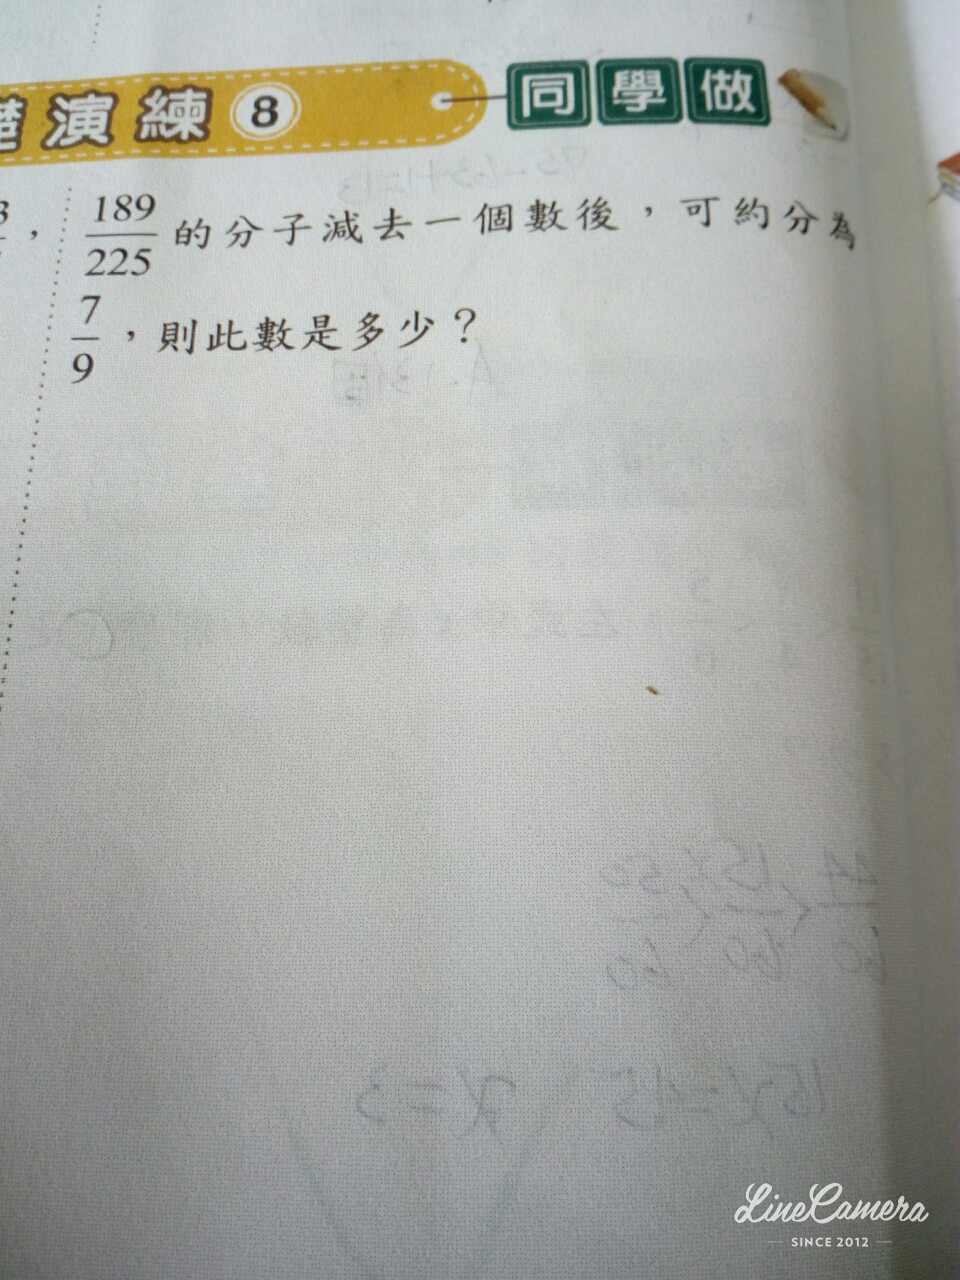 演練 8 同學做
189/225 的分子減去一個數後，可約分為
7/9，則此數是多少？
LineCamera
SINCE 2012